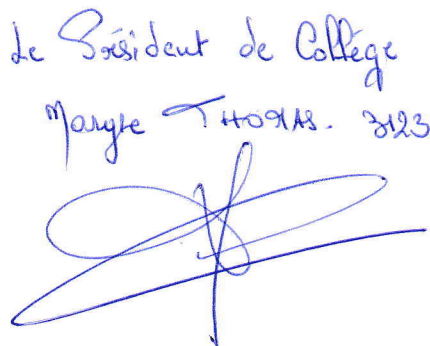 Le Président de Collège
Maryse THOMAS. 3123